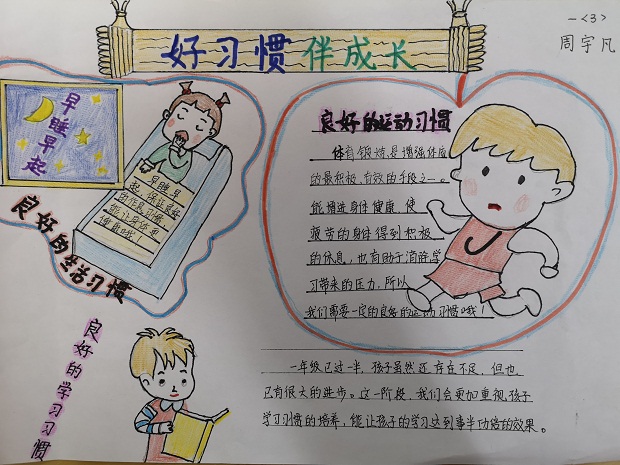 一<3>
周宇凡
好习惯伴成长
早睡早起
早睡早
起，保证良好
的作息习惯
能让身体更
健康哦！
良好的生活习惯
良好的运动习惯
体育锻炼是增强体质
的最积极、有效的手段之一。
能增进身体健康，使
疲劳的身体得到积极
的休息，也有助于消除学
习带来的压力，所以
我们需要一定的良好的运动习惯哦！
良好的学习习惯
一年级已过一半，孩子虽然还存在不足，但也
已有很大的进步。这一阶段，我们会更加重视孩子
学习习惯的培养，能让孩子的学习达到事半功倍的效果。